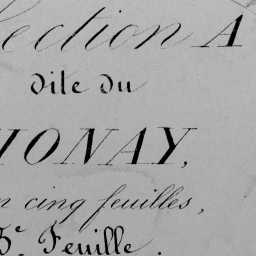 ection A
dite du
IONAY,
n cinq feuilles,
3e. Feuille.